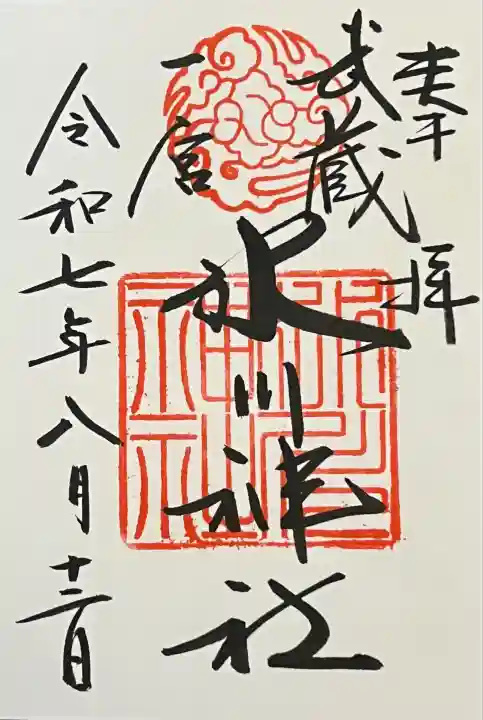 奉拝
武蔵
一宮
氷川神社
令和七年八月十三日